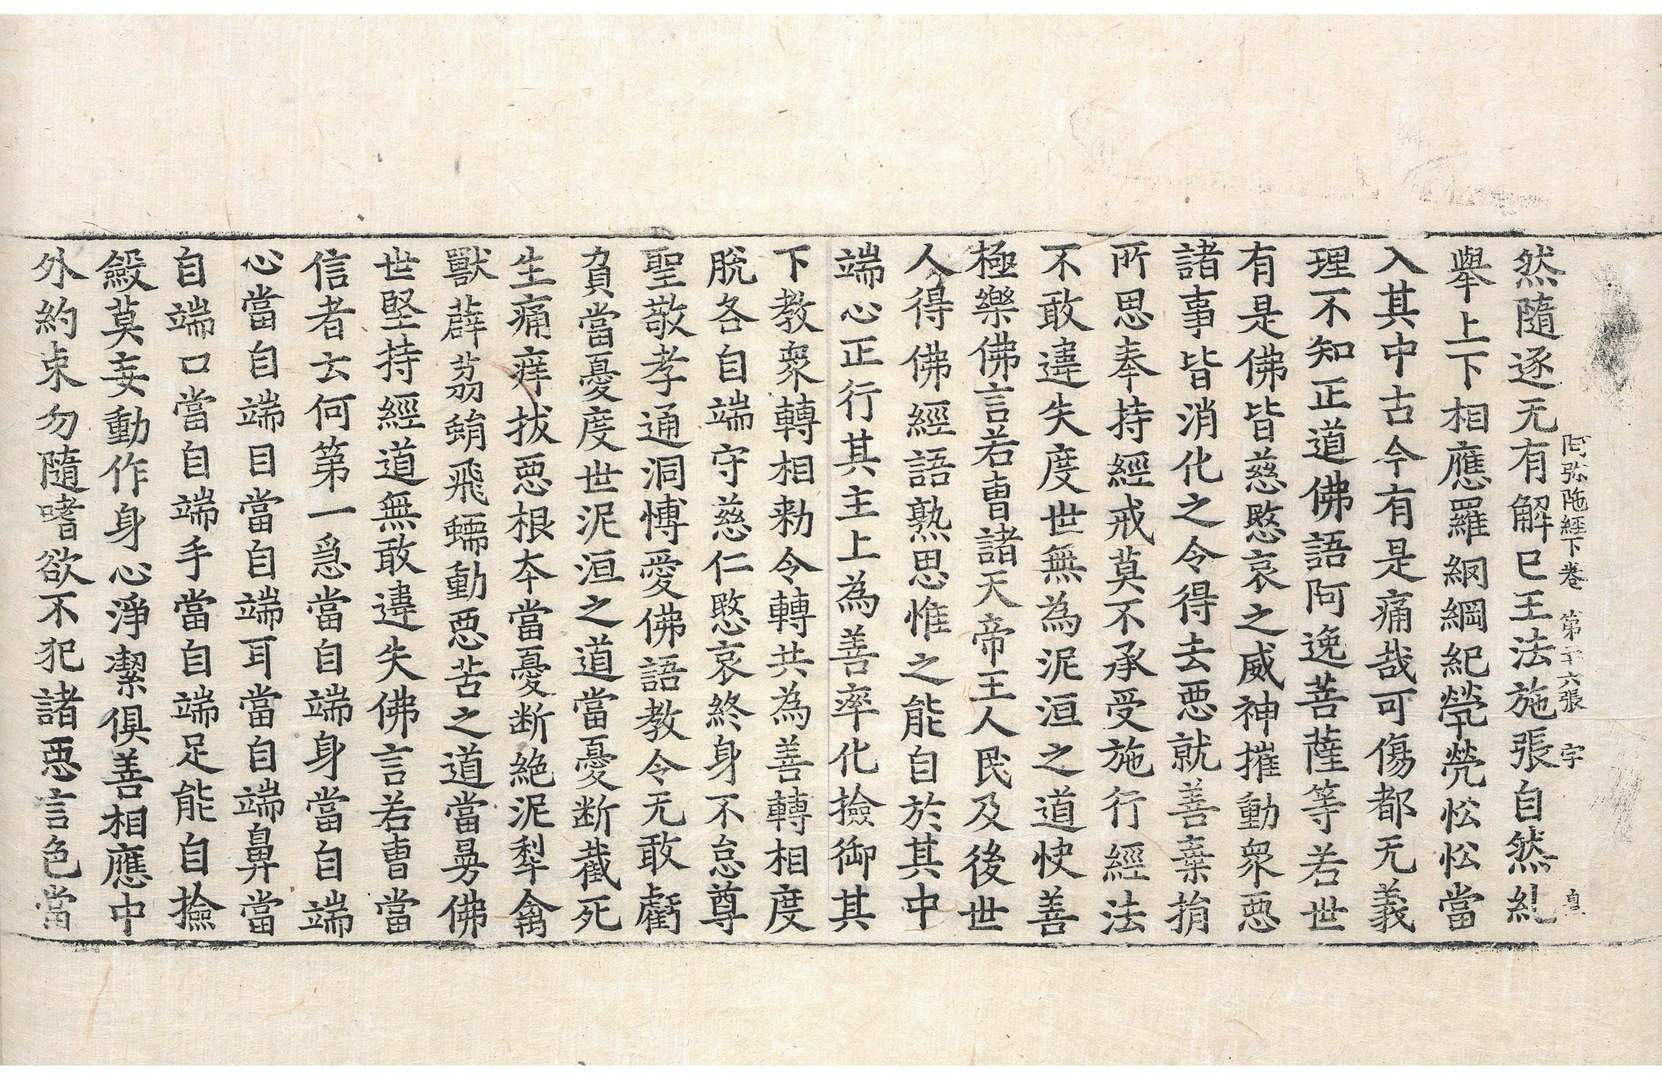 阿弥陁經下卷 第二十六張 字
然隨逐无有解已王法施張自然糺
舉上下相應羅網綱紀㷀㷀忪忪當
入其中古今有是痛哉可傷都无義
理不知正道佛語阿逸菩薩等若世
有是佛皆慈愍哀之威神摧動衆惡
諸事皆消化之令得去惡就善棄捐
所思奉持經戒莫不承受施行經法
不敢違失度世無為泥洹之道快善
極樂佛言若曹諸天帝王人民及後世
人得佛經語熟思惟之能自於其中
端心正行其主上為善率化撿御其
下教衆轉相勑令轉共為善轉相度
脫各自端守慈仁愍哀終身不怠尊
聖敬孝通洞博愛佛語教令无敢虧
負當憂度世泥洹之道當憂断截死
生痛痒拔惡根夲當憂断絶泥犁禽
獸薜茘蜎飛蠕動惡苦之道當曼佛
世堅持經道無敢違失佛言若曹當
信者云何第一急當自端身當自端
心當自端目當自端耳當自端鼻當
自端口當自端手當自端足能自撿
斂莫妄動作身心淨潔俱善相應中
外約束勿隨嗜欲不犯諸惡言色當